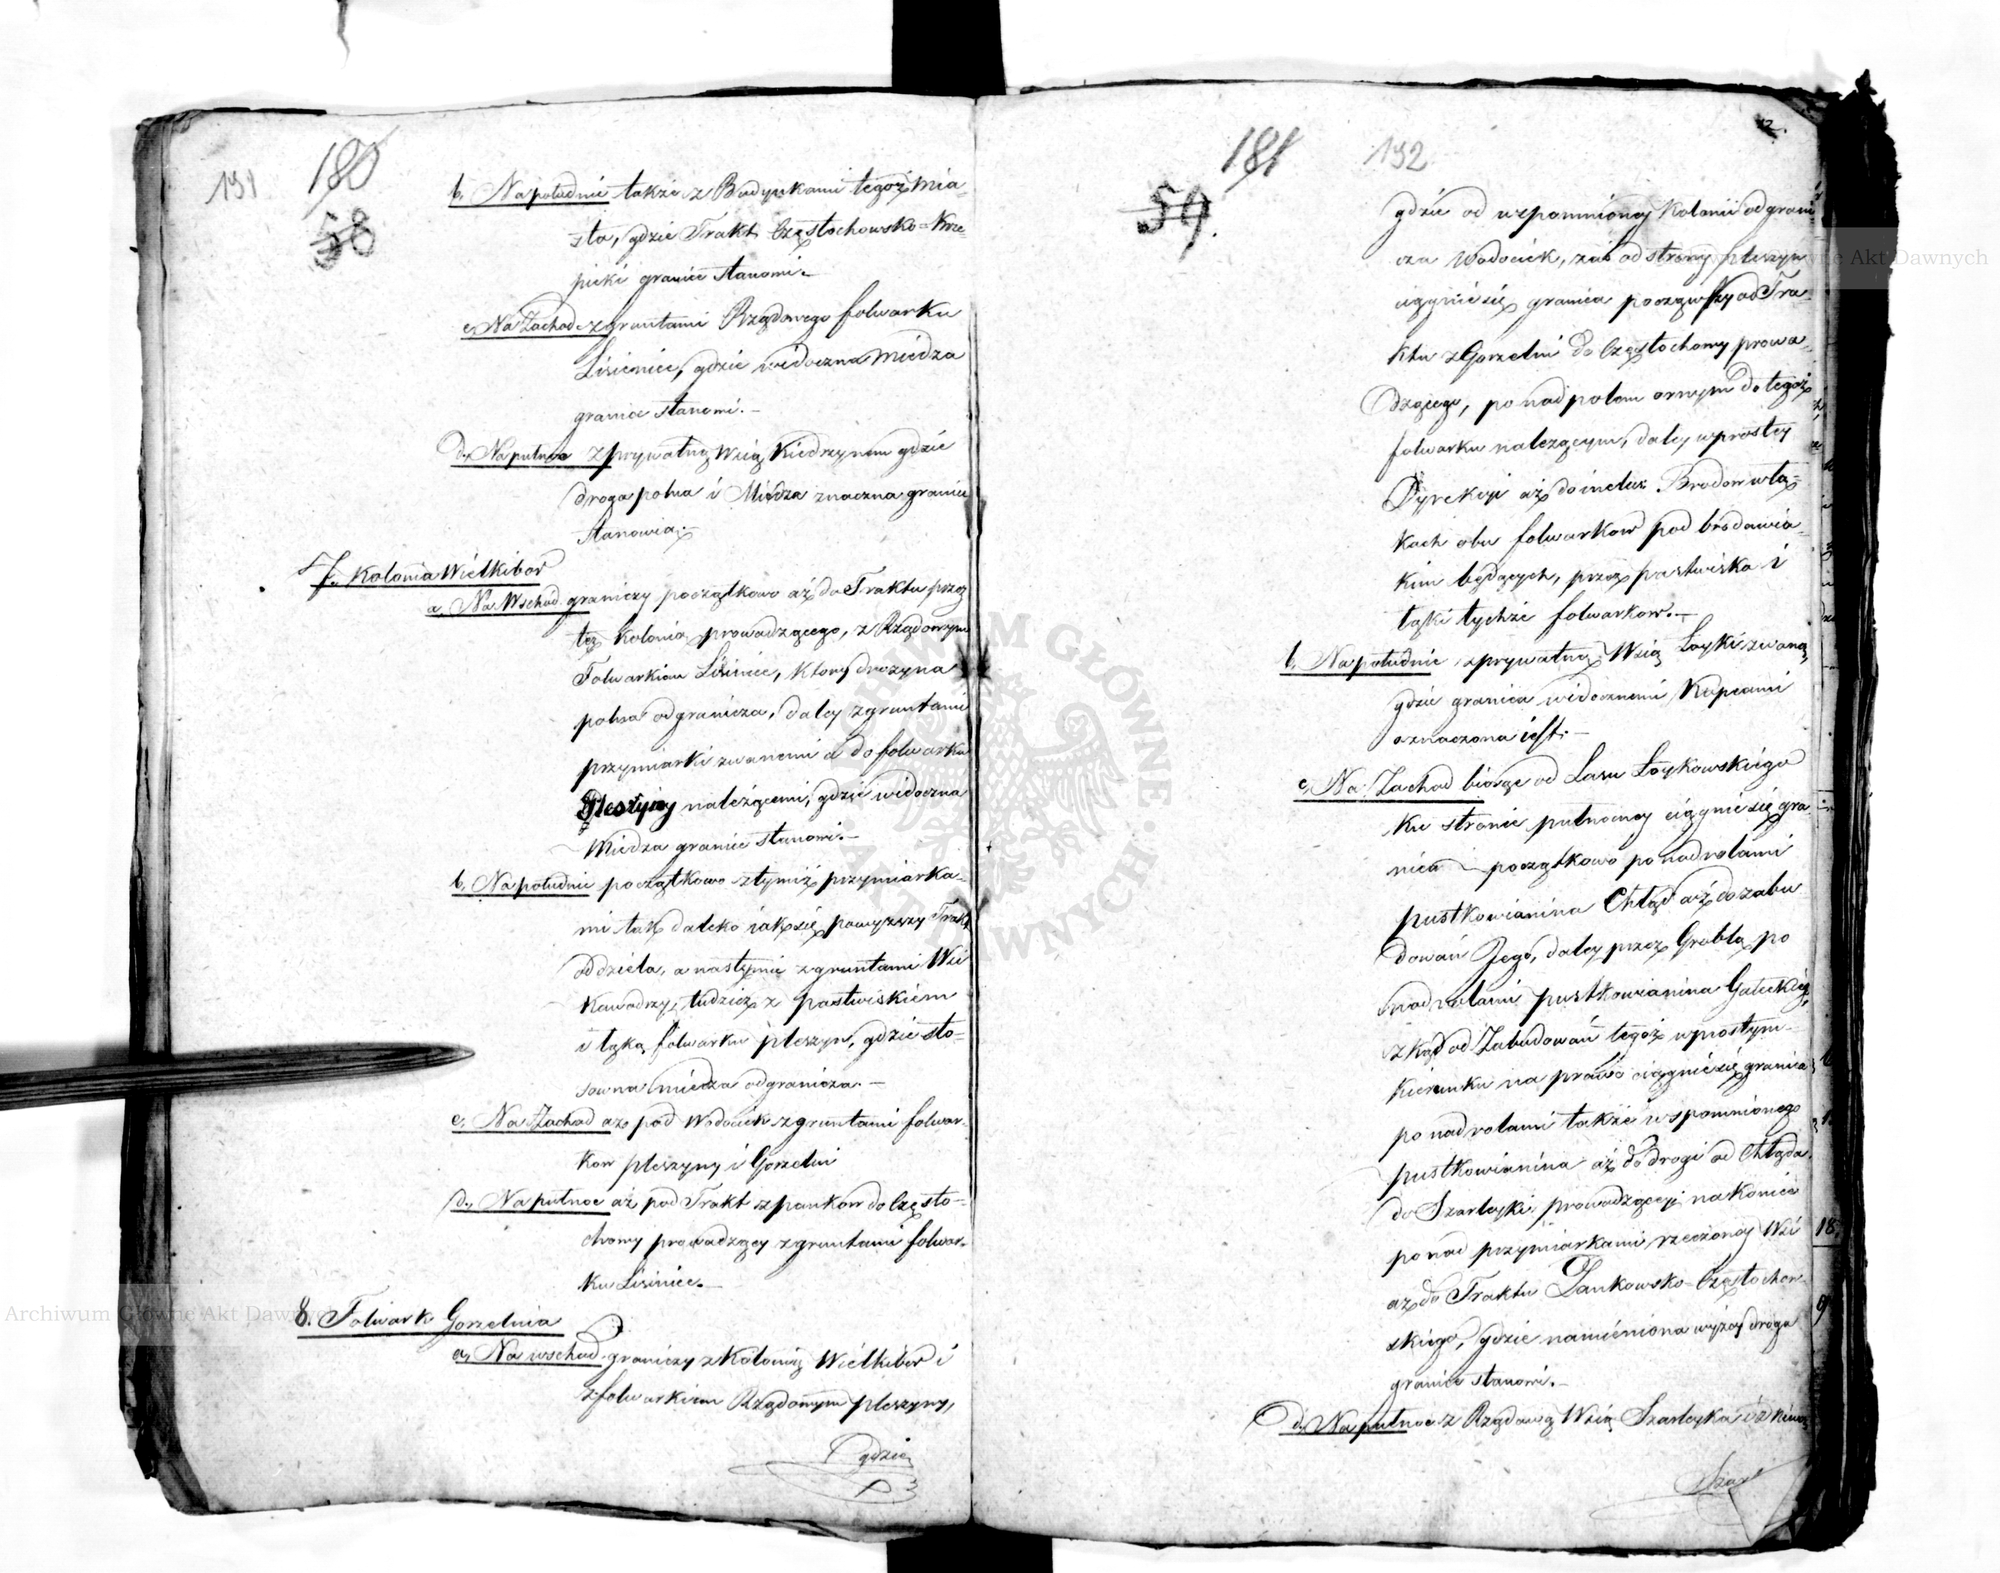 191
180
58
b. Na południe także z Budynkami tegoż Mia-
sta, gdzie Trakt Częstochowsko-Krze-
picki granice stanowi.-
c. Na Zachod z gruntami Rządowego folwarku
Lisieniec, gdzie widoczna Miedza
granice stanowi.-
d. Na pułnoc z prywatną Wsią Kiedrzynem gdzie
droga polna i Miedza znaczna granice
stanowią.-
7. Kolonia Wielkibor
a. Na Wschod graniczy początkowo aż do Traktu przez
tęż kolonią prowadzącego, z Rządowym
Folwarkiem Lisiniec, ktory drożyna
polna odgranicza, daley z gruntami
przymiarki zwanemi a do folwarku
Pleszyny należącemi, gdzie widoczna
Miedza granice stanowi.-
b. Na południe początkowo z tymiż przymiarka-
mi tak daleko iak się powyższy Trakt
oddziela, a następnie z gruntami Wsi
Kawodrzy, tudzież z pastwiskiem
i łąką folwarku pleszyn, gdzie sto-
sowna miedza odgranicza.-
c. Na Zachod aż pod Wodociek z gruntami folwar-
kow pleszyny i Gorzelni
d. Na pułnoc aż pod Trakt z pankow do Często-
chowy prowadzący z gruntami folwar-
ku Lisiniec.-
8. Folwark Gorzelnia
a. Na wschod graniczy z Kolonią Wielkibor i
z folwarkiem Rządowym pleszyny,
gdzie
181
192
59.
gdzie od wspomnioney Kolonii odgrani-
cza Wodociek, zaś od strony pleszyn
ciągnie się granica począwszy od Tra-
ktu z Gorzelni do Częstochowy prowa-
dzącego, ponad polem ornym do tegoż
folwarku należącym, daley w prostey
Dyrekcyi aż do
kach obu folwarkow pod
kim będących, przez pastwiska i
łąki tychże folwarkow.-
b. Na południe z prywatną Wsią Łoyki zwaną,
gdzie granica widocznemi Kopcami
oznaczona iest.-
c. Na Zachod biorąc od Lasu Łoykowskiego
ku stronie pułnocney ciągnie się gra-
nica początkowo ponad rolami
pustkowianina Chłąd aż do zabu
dowań Jego, daley przez Groblą po
nad rolami pustkowianina
zkąd od Zabudowań tegoż w prostym
kierunku na prawo ciągnie się granica
ponad rolami także wspomnionego
pustkowianina aż do drogi od Chłąda
do Szarleyki prowadzącey, nakoniec
ponad przymiarkami rzeczoney Wsi
aż do Traktu Pankowsko-Częstochow-
skiego, gdzie namieniona wyżey droga
granice stanowi.-
d. Na pułnoc z Rządową Wsią Szarleyka
Archiwum Główne Akt Dawnych
ARCHIWUM GŁÓWNE AKT DAWNYCH